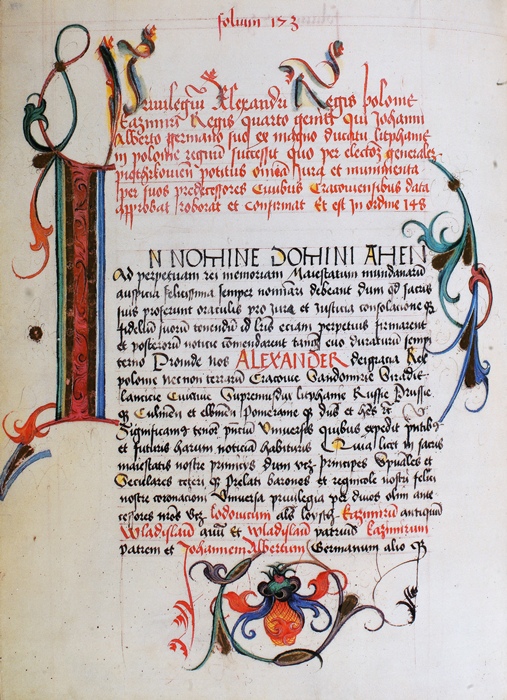 folium 153
Privilegiũ Alexandri Regis polonie
Kazimiri Regis quarto geniti qui Johanni
Alberto germano suo ex magno ducatu lithpanie
in polonie regnũ successit quo per electoz generalez
piothrkovien potitus omnia Jura et munimenta
per suos predecessores Civibus Cracoviensibus data
approbat roborat et confirmat Et est in ordine 148
IN NOMINE DOMINI AMEN
Ad perpetuam rei memoriam Maiestatum mundanarũ
auspicia felicissima semper nominari debeant dum qd sacris
suis proferunt oraculis pro jure et iusticia consolacione qz
fidelium suorũ tenendũ id lris eciam perpetuis firmarent
et posterorũ noticie cõmendarent tanqz evo duraturũ semp
terno Proinde nos ALEXANDER dei gracia Rex
polonie nec non terrarũ Cracovie Sandomirie Siradie
lancicie Cuiavie Supremusdux lithphanie Russie Prussie
qz Culmeñ et elbineñ Pomeranie qz dñs et heds etc
Significamus tenore pñtiũ Universis quibus expedit pñtibus
et futuris harum noticiã habituris Quia licet in sacris
maiestatis nostre primiciis dum vtz principes spũales et
Seculares ceteri qz prelati barones et regnicole nostri felici
nostre coronacioni Universa privilegia per divos olim ante
cessores nr̃os vtz Lodovicum als loysch Kazimirũ antiquũ
Wladislaũ avũ et Wladislaũ patruũ Kazimirum
patrem et Johannem Albertum Germanum alio qz